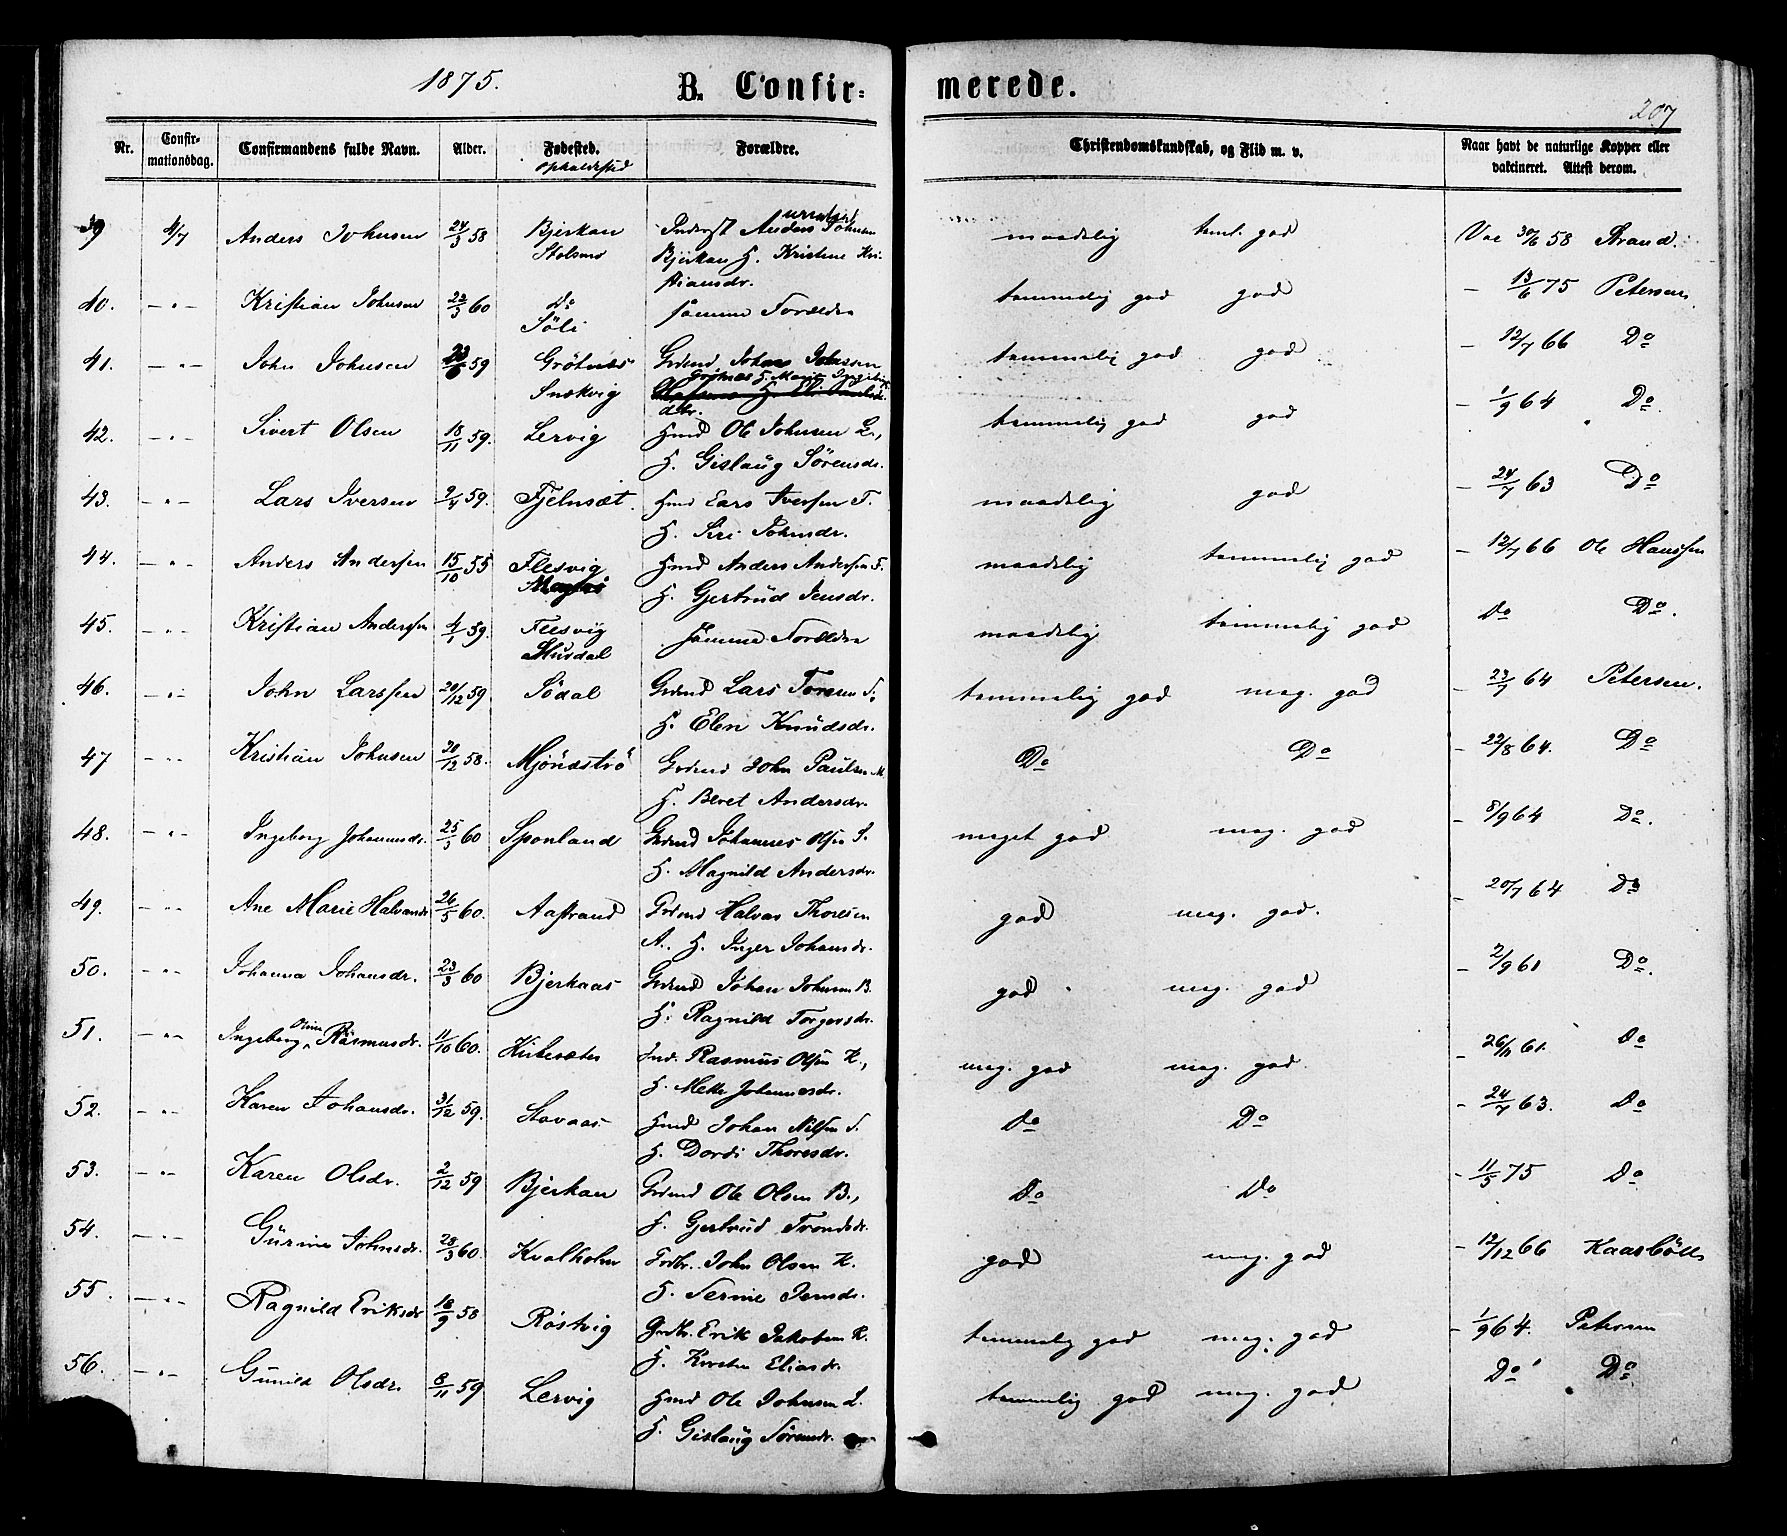 1875.
B. Confir=
merede.
207
Nr.
Confir-
mationsdag.
Confirmandens fulde Navn.
Alder.
Fødested.
Opholdssted
Forældre.
Christendomskundskab, og Flid m. v.
Naar havt de naturlige Kopper eller
vakcineret. Attest derom.
39 4/7 Anders Johnsen 24/3 58 Bjerkan Anders Johnsen maadelig teml. god Vac 30/6 58 Strand.
Bjerkan H. Kristine Kri-
stiansdr.
40. — " — Kristian Johnsen 22/3 60 Do samme Forældre temmelig god god — 13/6 75 Petersen
Söli
41. — " — John Johnsen 59 Grötnæs Grdmd Johan Johnsen temmelig god god — 12/7 66 Do
Snekvig H. Marit
dtr.
42. — " — Sivert Olsen 18/11 59. Lervig Hmd Ole Johnsen L., temmelig god god — 1/9 64 Do.
H. Gislaug Sörensdr.
43. — " — Lars Iversen 2/4 59. Fjelnsæt. Hmd Lars Iversen F. maadelig god — 24/7 63 Do
H. Siri Johnsdr.
44. — " — Anders Andersen 15/10 55 Flesvig Hmd Anders Andersen F. maadelig temmelig god — 12/7 66 Ole Hanssen
H. Gjertrud Jensdr.
45. — " — Kristian Andersen 4/1 59. Flesvig samme Forældre maadelig temmelig god Do Do.
46. — " — John Larssen 20/12 59 Södal Grdmd Lars Toresen S., temmelig god meg. god — 23/7 64 Petersen.
H. Elen Knudsdr.
47 — " — Kristian Johnsen 30/12 58. Mjönæströ Grdmd John Paulsen M. Do Do — 22/8 64. Do
H. Beret Andersdr.
48. — " — Ingeborg Johannesdr. 25/3 60 Sponland Grdmd Johannes Olsen S. meget god meg. god — 8/9 64 Do.
H. Magnild Andersdr.
49. — " — Ane Marie Halvorsdr 26/5 60. Aastrand Grdmd Halvor Thoresen god meg. god. — 20/7 64 Do
A. H. Inger Johansdr.
50. — " — Johanna Johansdr. 23/3 60 Bjerkaas Grdmd Johan Johnsen B. god meg. god — 2/9 61 Do.
H. Ragnild Torgersdr.
51. — " — Ingeborg Oline Rasmusdr. 11/10 60. Kirkesæter Ind. Rasmus Olsen K., meg. god meg. god. — 26/11 61. Do
H. Mette Johannesdr.
52. — " — Karen Johansdr. 31/12 59. Stavaas Hmd Johan Nilsen S. Do Do — 24/7 63. Do
H. Dordi Thoresdr.
53. — " — Karen Olsdr. 2/12 59 Bjerkan Grdmd Ole Olsen B., Do Do — 11/5 75 Do
H. Gjertrud Trondsdr.
54. — " — Gurine Johnsdr. 28/3 60. Kvalholm Grdbr. John Olsen K. god meg. god — 12/12 66 Kaasböll
H. Serine Jensdr.
55. — " — Ragnild Eriksdr 18/9 58 Röstvig Grdbr. Erik Jakobsen R. temmelig god meg. god — 1/9 64. Petersen
H. Kirsten Eliasdr.
56. — " — Gunild Olsdr. 8/11 59 Lervig Hmd Ole Johnsen L. temmelig god meg. god Do Do
H. Gislaug Sörensdr.